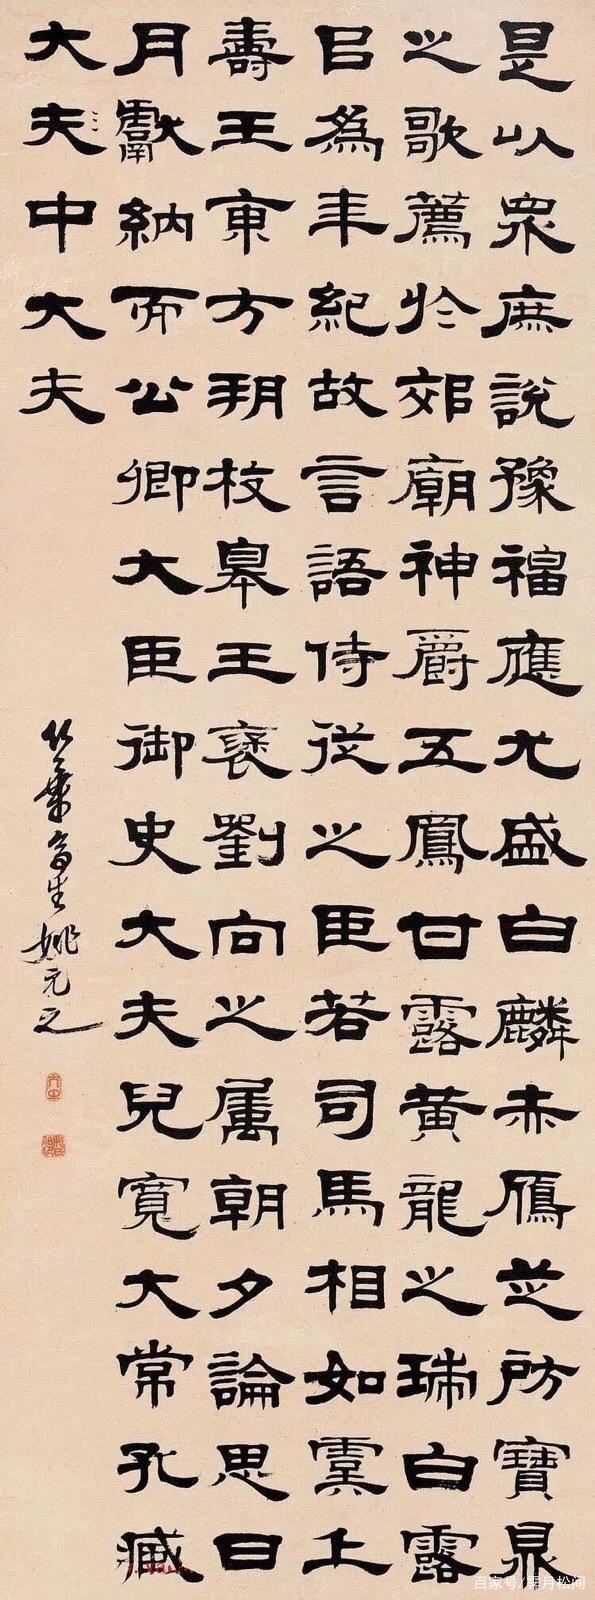 是以衆庶說豫福應尤盛白麟赤鴈芝房寶鼎
之歌薦於郊廟神爵五鳳甘露黃龍之瑞白露
㠯為年紀故言語侍從之臣若司馬相如虞上
壽王東方朔枚皋王褒劉向之屬朝夕論思日
月獻納而公卿大臣御史大夫兒寬大常孔臧
大夫中大夫
竹葉亭生姚元之
百家号/霁月松间